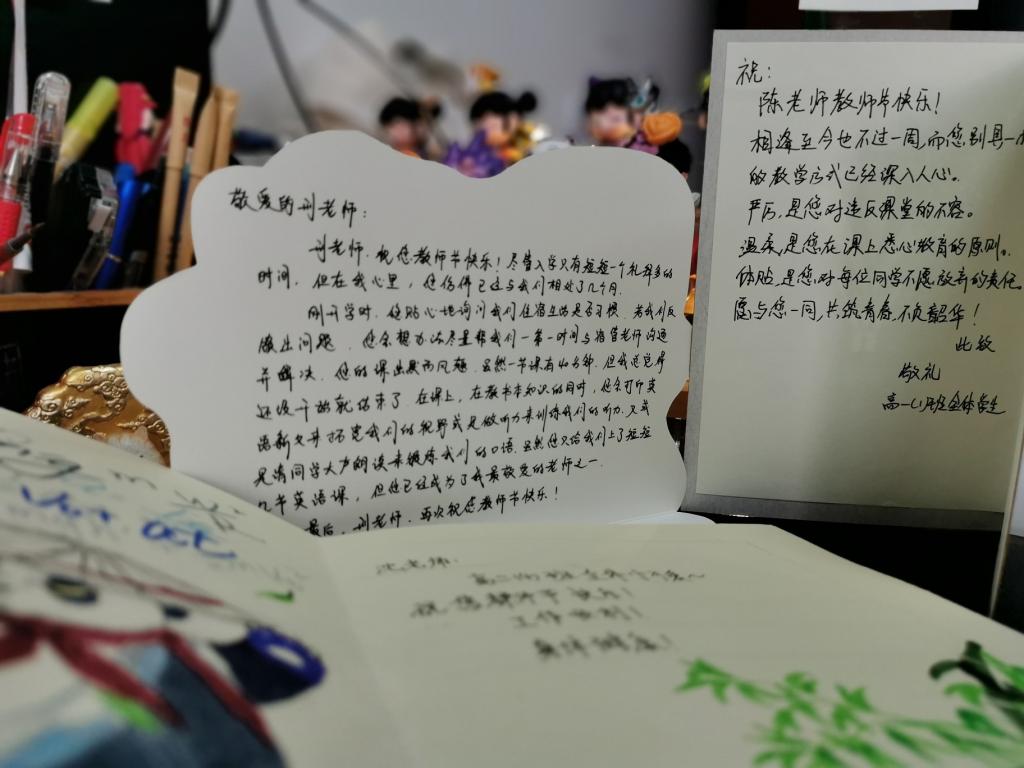 敬爱的刘老师：
刘老师，祝您教师节快乐！尽管入学只有短短一个礼拜多的
时间，但在我心里，您仿佛已经与我们相处了几个月。
刚开学时，您贴心地询问我们住宿生活是否习惯，若我们反
映出问题，您会想办法尽量帮我们第一时间与宿管老师沟通
并解决。您的课幽默而风趣，虽然一节课有40分钟，但我总觉得
还没干啥就结束了。在课上，在教书本知识的同时，您会打印英
语新文并拓宽我们的视野或是做听力来训练我们的听力，又或
是请同学大声朗读来锻炼我们的口语。虽然您只给我们上了短短
几节英语课，但您已经成为了我最敬爱的老师之一。
最后，刘老师，再次祝您教师节快乐！
祝：
陈老师教师节快乐！
相逢至今也不过一周，而您别具一
的教学方式已经深入人心。
严厉，是您对违反课堂的不容。
温柔，是您在课上悉心教育的原则。
体贴，是您对每位同学不愿放弃的责任。
愿与您一同，共筑青春，不负韶华！
此致
敬礼
高一(1)班全体学生
沈老师：
祝您教师节快乐！
工作顺利！
身体健康！